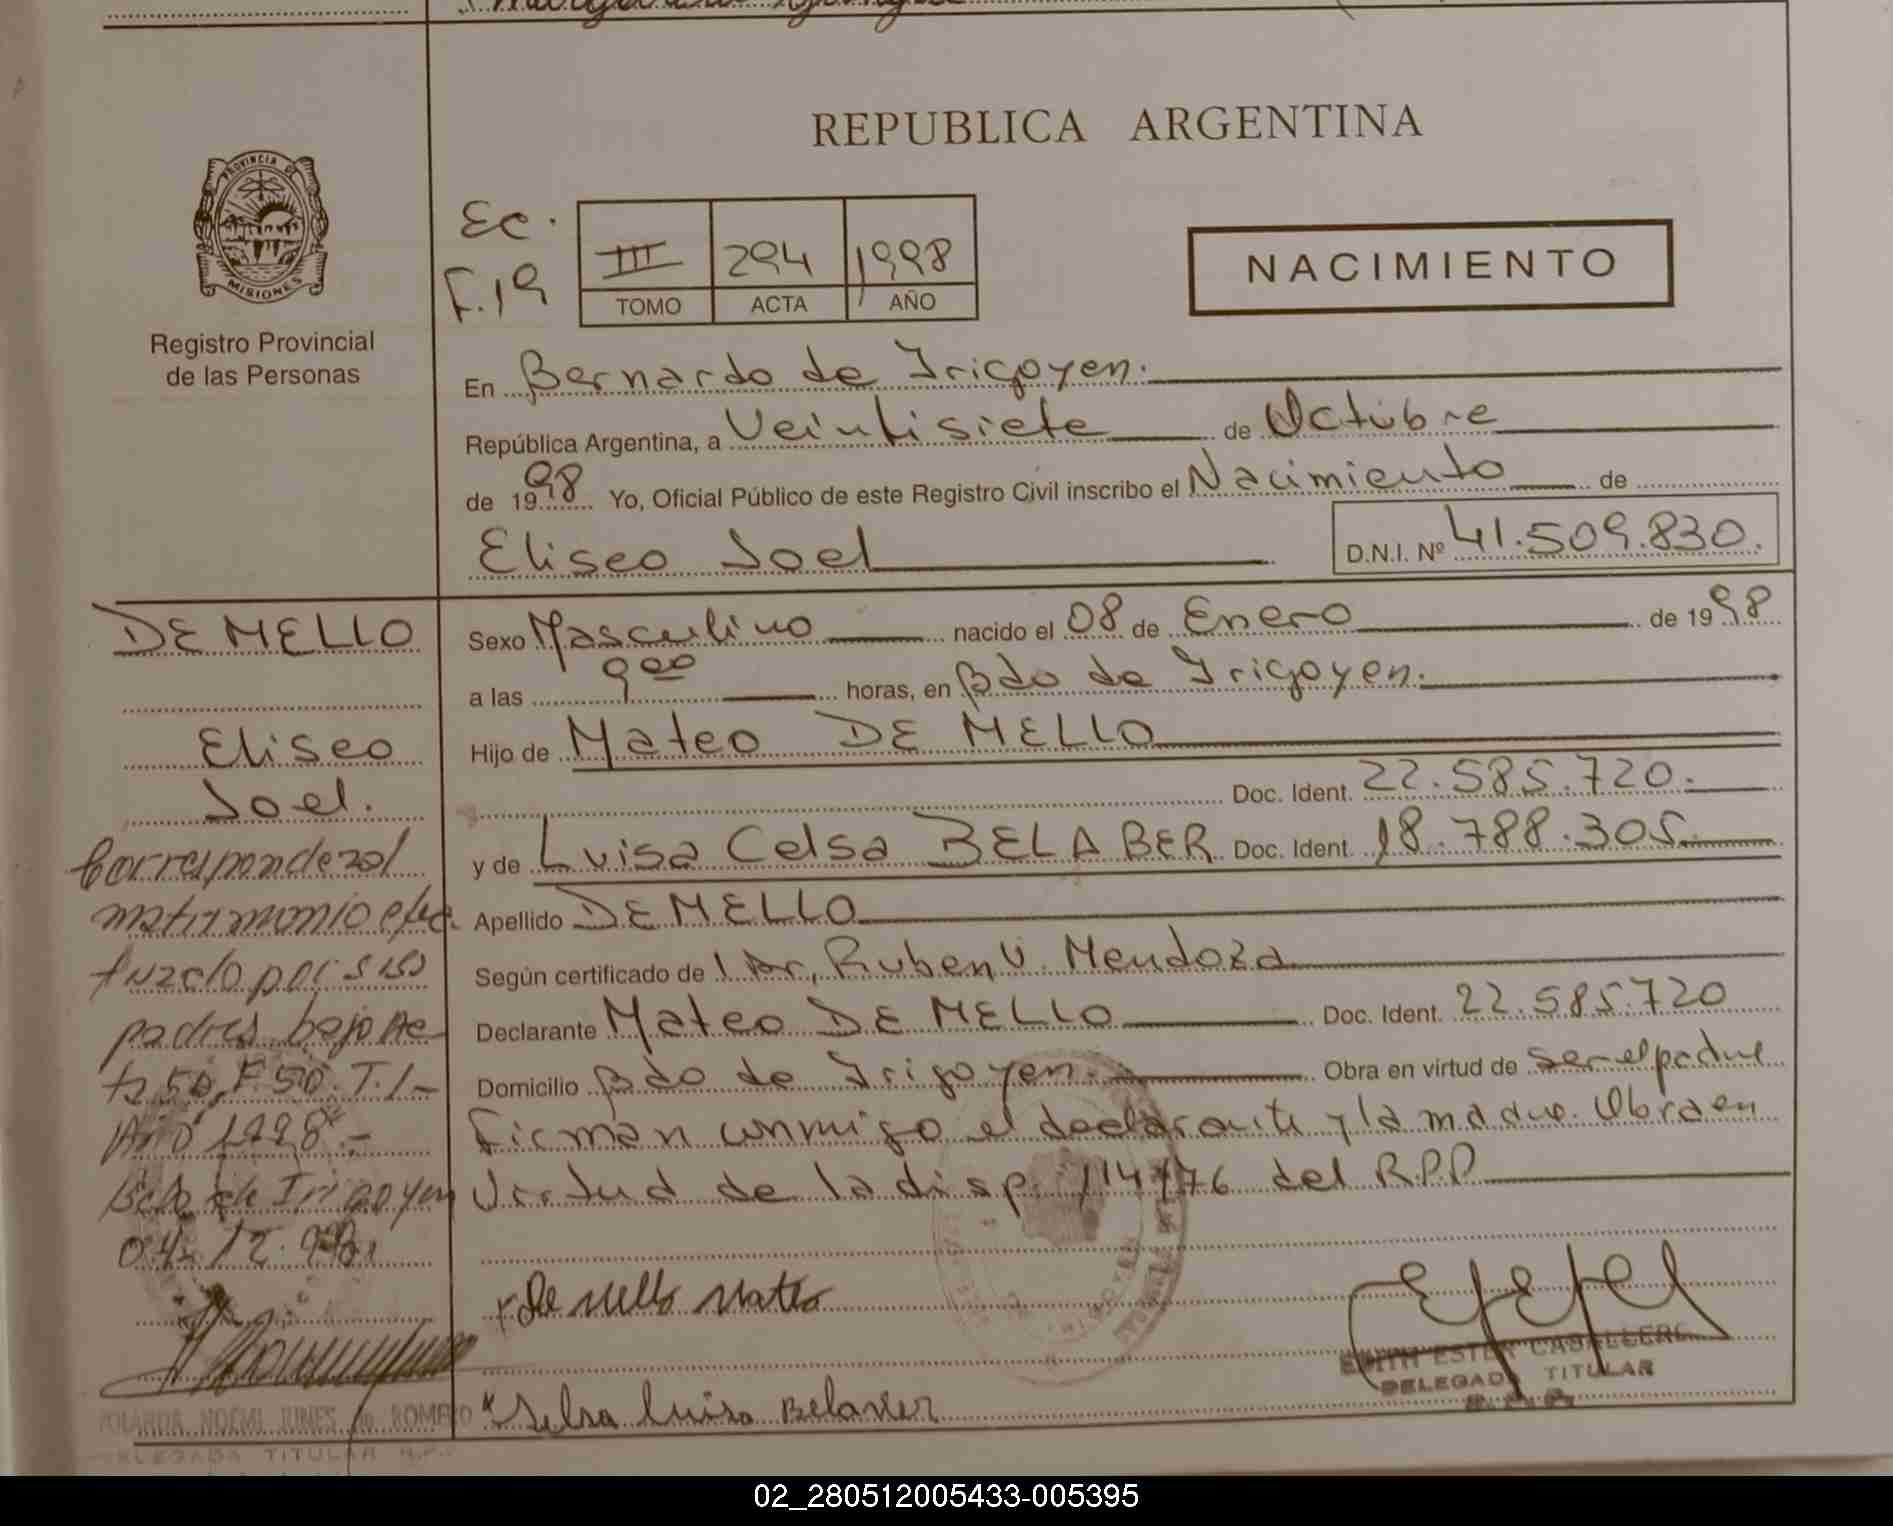 REPUBLICA ARGENTINA
PROVINCIA DE
MISIONES
Registro Provincial
de las Personas
Ec.
F.19
III 294 1998
TOMO ACTA AÑO
NACIMIENTO
En Bernardo de Irigoyen.
República Argentina, a Veintisiete de Octubre
de 1998 Yo, Oficial Público de este Registro Civil inscribo el Nacimiento de
Eliseo Joel D.N.I. Nº 41.509.830.
DE MELLO
Eliseo
Joel.
Sexo Masculino nacido el 08 de Enero de 1998
a las 9 00 horas, en Bdo de Irigoyen.
Hijo de Mateo DE MELLO
Doc. Ident. 22.585.720.
y de Luisa Celsa BELABER Doc. Ident. 18.788.305.
Apellido DE MELLO
Según certificado de Dr, Ruben V. Mendoza
Declarante Mateo DE MELLO Doc. Ident. 22.585.720
Domicilio Bdo de Irigoyen. Obra en virtud de ser el padre
Firman conmigo el declarante y la madre. Obra en
Virtud de la disp. 114/76 del R.P.P
Corresponde al
matrimonio efec
tuado por sus
padres bajo Ac
ta 50, F 50. T.1-
Año 1998.-
Bdo de Irigoyen
04-12-98
De Mello Mateo
Selsa Luisa Belaver
EDITH ESTER CABALLERO
DELEGADA TITULAR
YOLANDA NOEMI JUNES de ROMERO
DELEGADA TITULAR R.P.
02_280512005433-005395